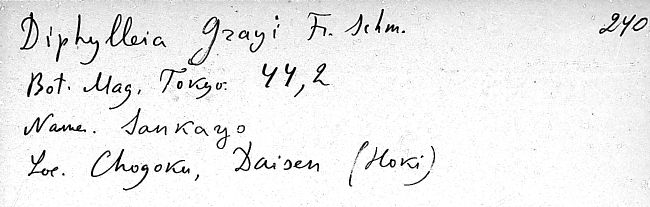 Diphylleia Grayi Fr. Schm. 240
Bot. Mag. Tokyo. 44,2
Name. Sankayo
Loc. Chogoku, Daisen (Hoki)